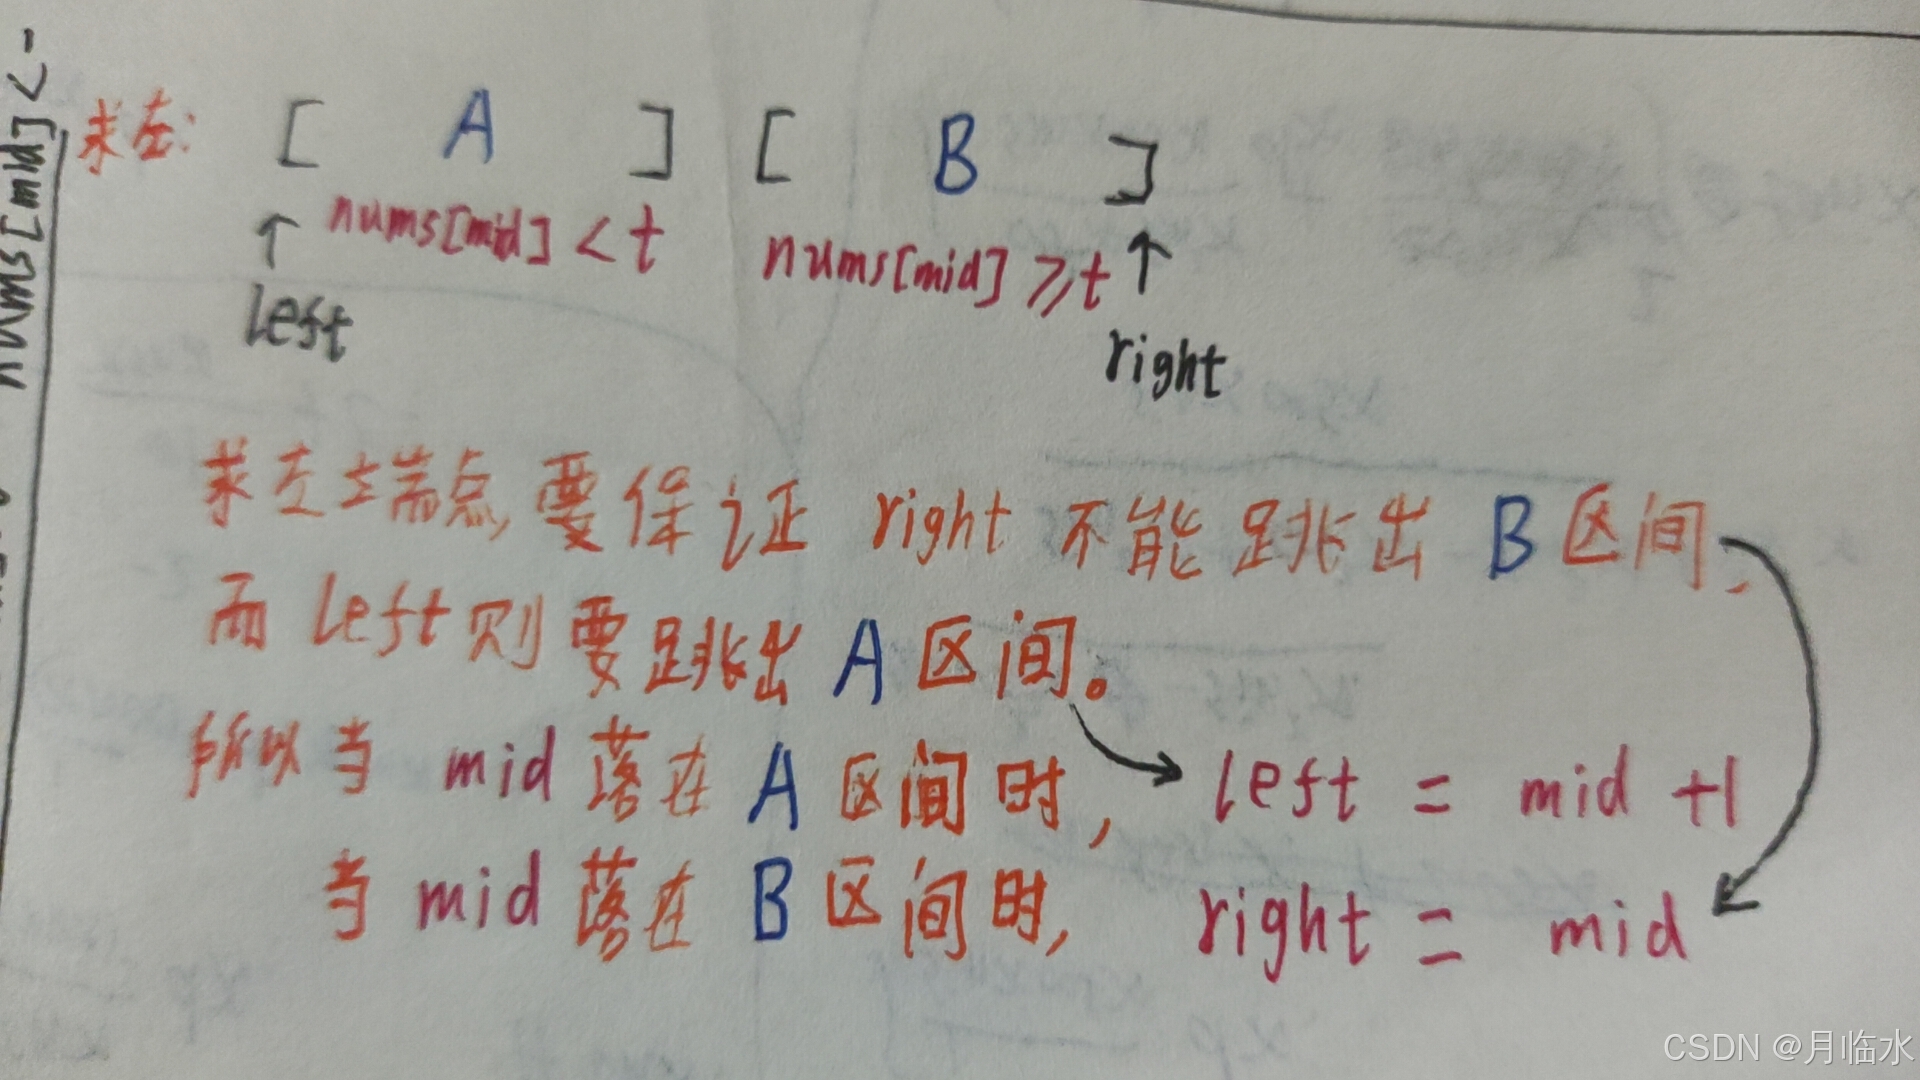 nums[mid] <
求左: [ A ] [ B ]
nums[mid] < t nums[mid] ⩾ t
left right
求左端点, 要保证 right 不能跳出 B 区间,
而 left 则要跳出 A 区间。
所以当 mid 落在 A 区间时, left = mid +1
当 mid 落在 B 区间时, right = mid
CSDN @月临水